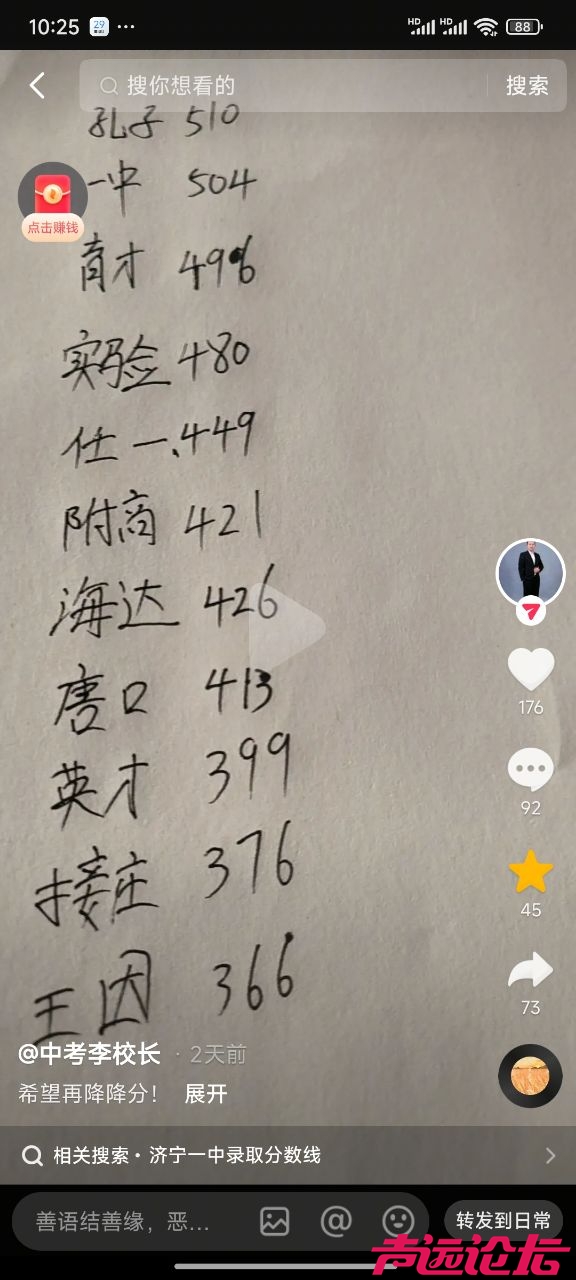 10:25 29 ··· HD HD 88
搜你想看的 搜索
孔子 510
一中 504
点击赚钱
育才 496
实验 480
任一、449
附商 421
海达 426
唐口 413
英才 399
接庄 376
王因 366
176
92
45
73
@中考李校长 · 2天前
希望再降降分! 展开
相关搜索 · 济宁一中录取分数线
善语结善缘，恶... @ 转发到日常
声远论坛